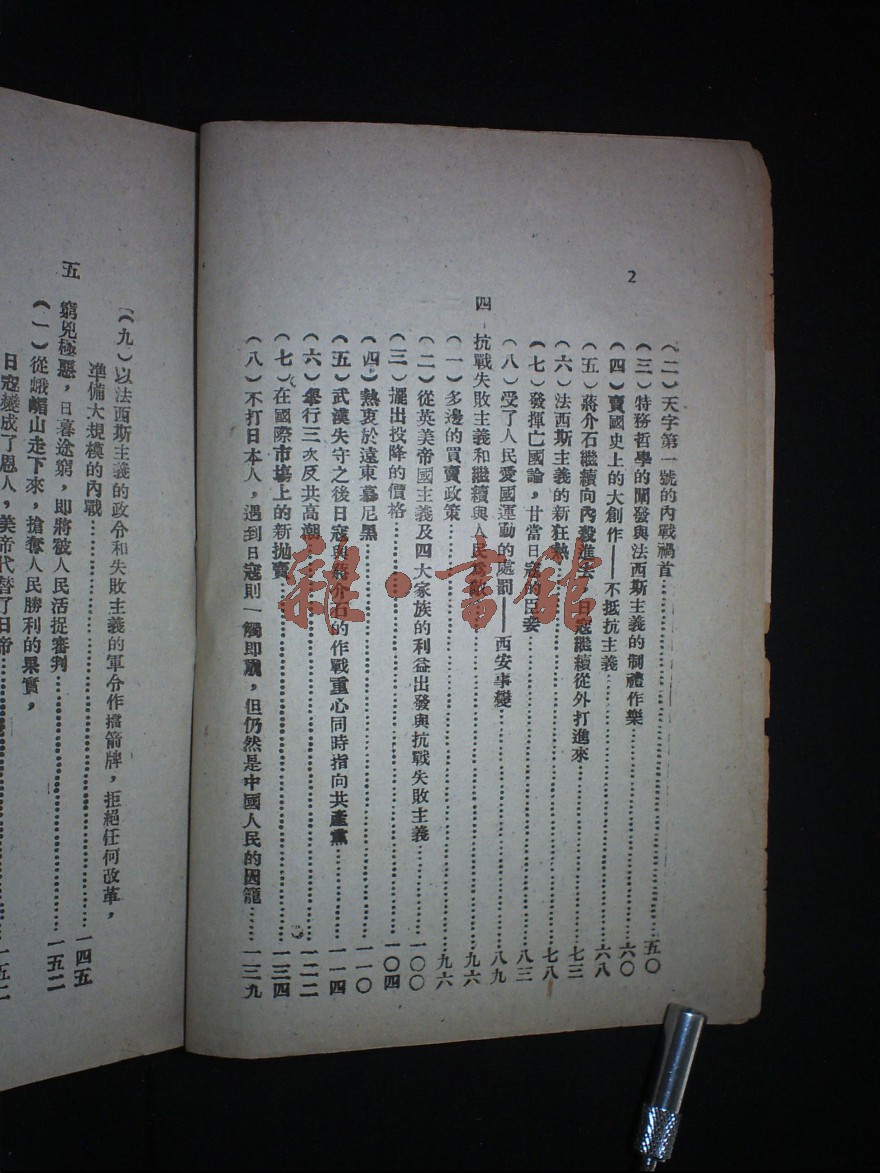 2
(二)天字第一號的內戰禍首……五〇
(三)特務哲學的闡發與法西斯主義的制禮作樂……六〇
(四)賣國史上的大創作——不抵抗主義……六八
(五)蔣介石繼續向內殺進去,日寇繼續從外打進來……七三
(六)法西斯主義的新狂熱……七八
(七)發揮亡國論,甘當日寇的臣妾……八三
(八)受了人民愛國運動的處罰——西安事變……八九
四 抗戰失敗主義和繼續與人民爲敵……九六
(一)多邊的買賣政策……九六
(二)從英美帝國主義及四大家族的利益出發與抗戰失敗主義……一〇〇
(三)擺出投降的價格……一〇四
(四)熱衷於遠東慕尼黑……一一〇
(五)武漢失守之後日寇與蔣介石的作戰重心同時指向共產黨……一一四
(六)舉行三次反共高潮……一二二
(七)在國際市場上的新拋賣……一三四
(八)不打日本人,遇到日寇則一觸即潰,但仍然是中國人民的囚籠……一三九
(九)以法西斯主義的政令和失敗主義的軍令作擋箭牌,拒絕任何改革,
準備大規模的內戰……一四五
五 窮兇極惡,日暮途窮,即將被人民活捉審判……一五二
(一)從峨嵋山走下來,搶奪人民勝利的果實,
日寇變成了恩人,美帝代替了日帝……一五二
雜·書館